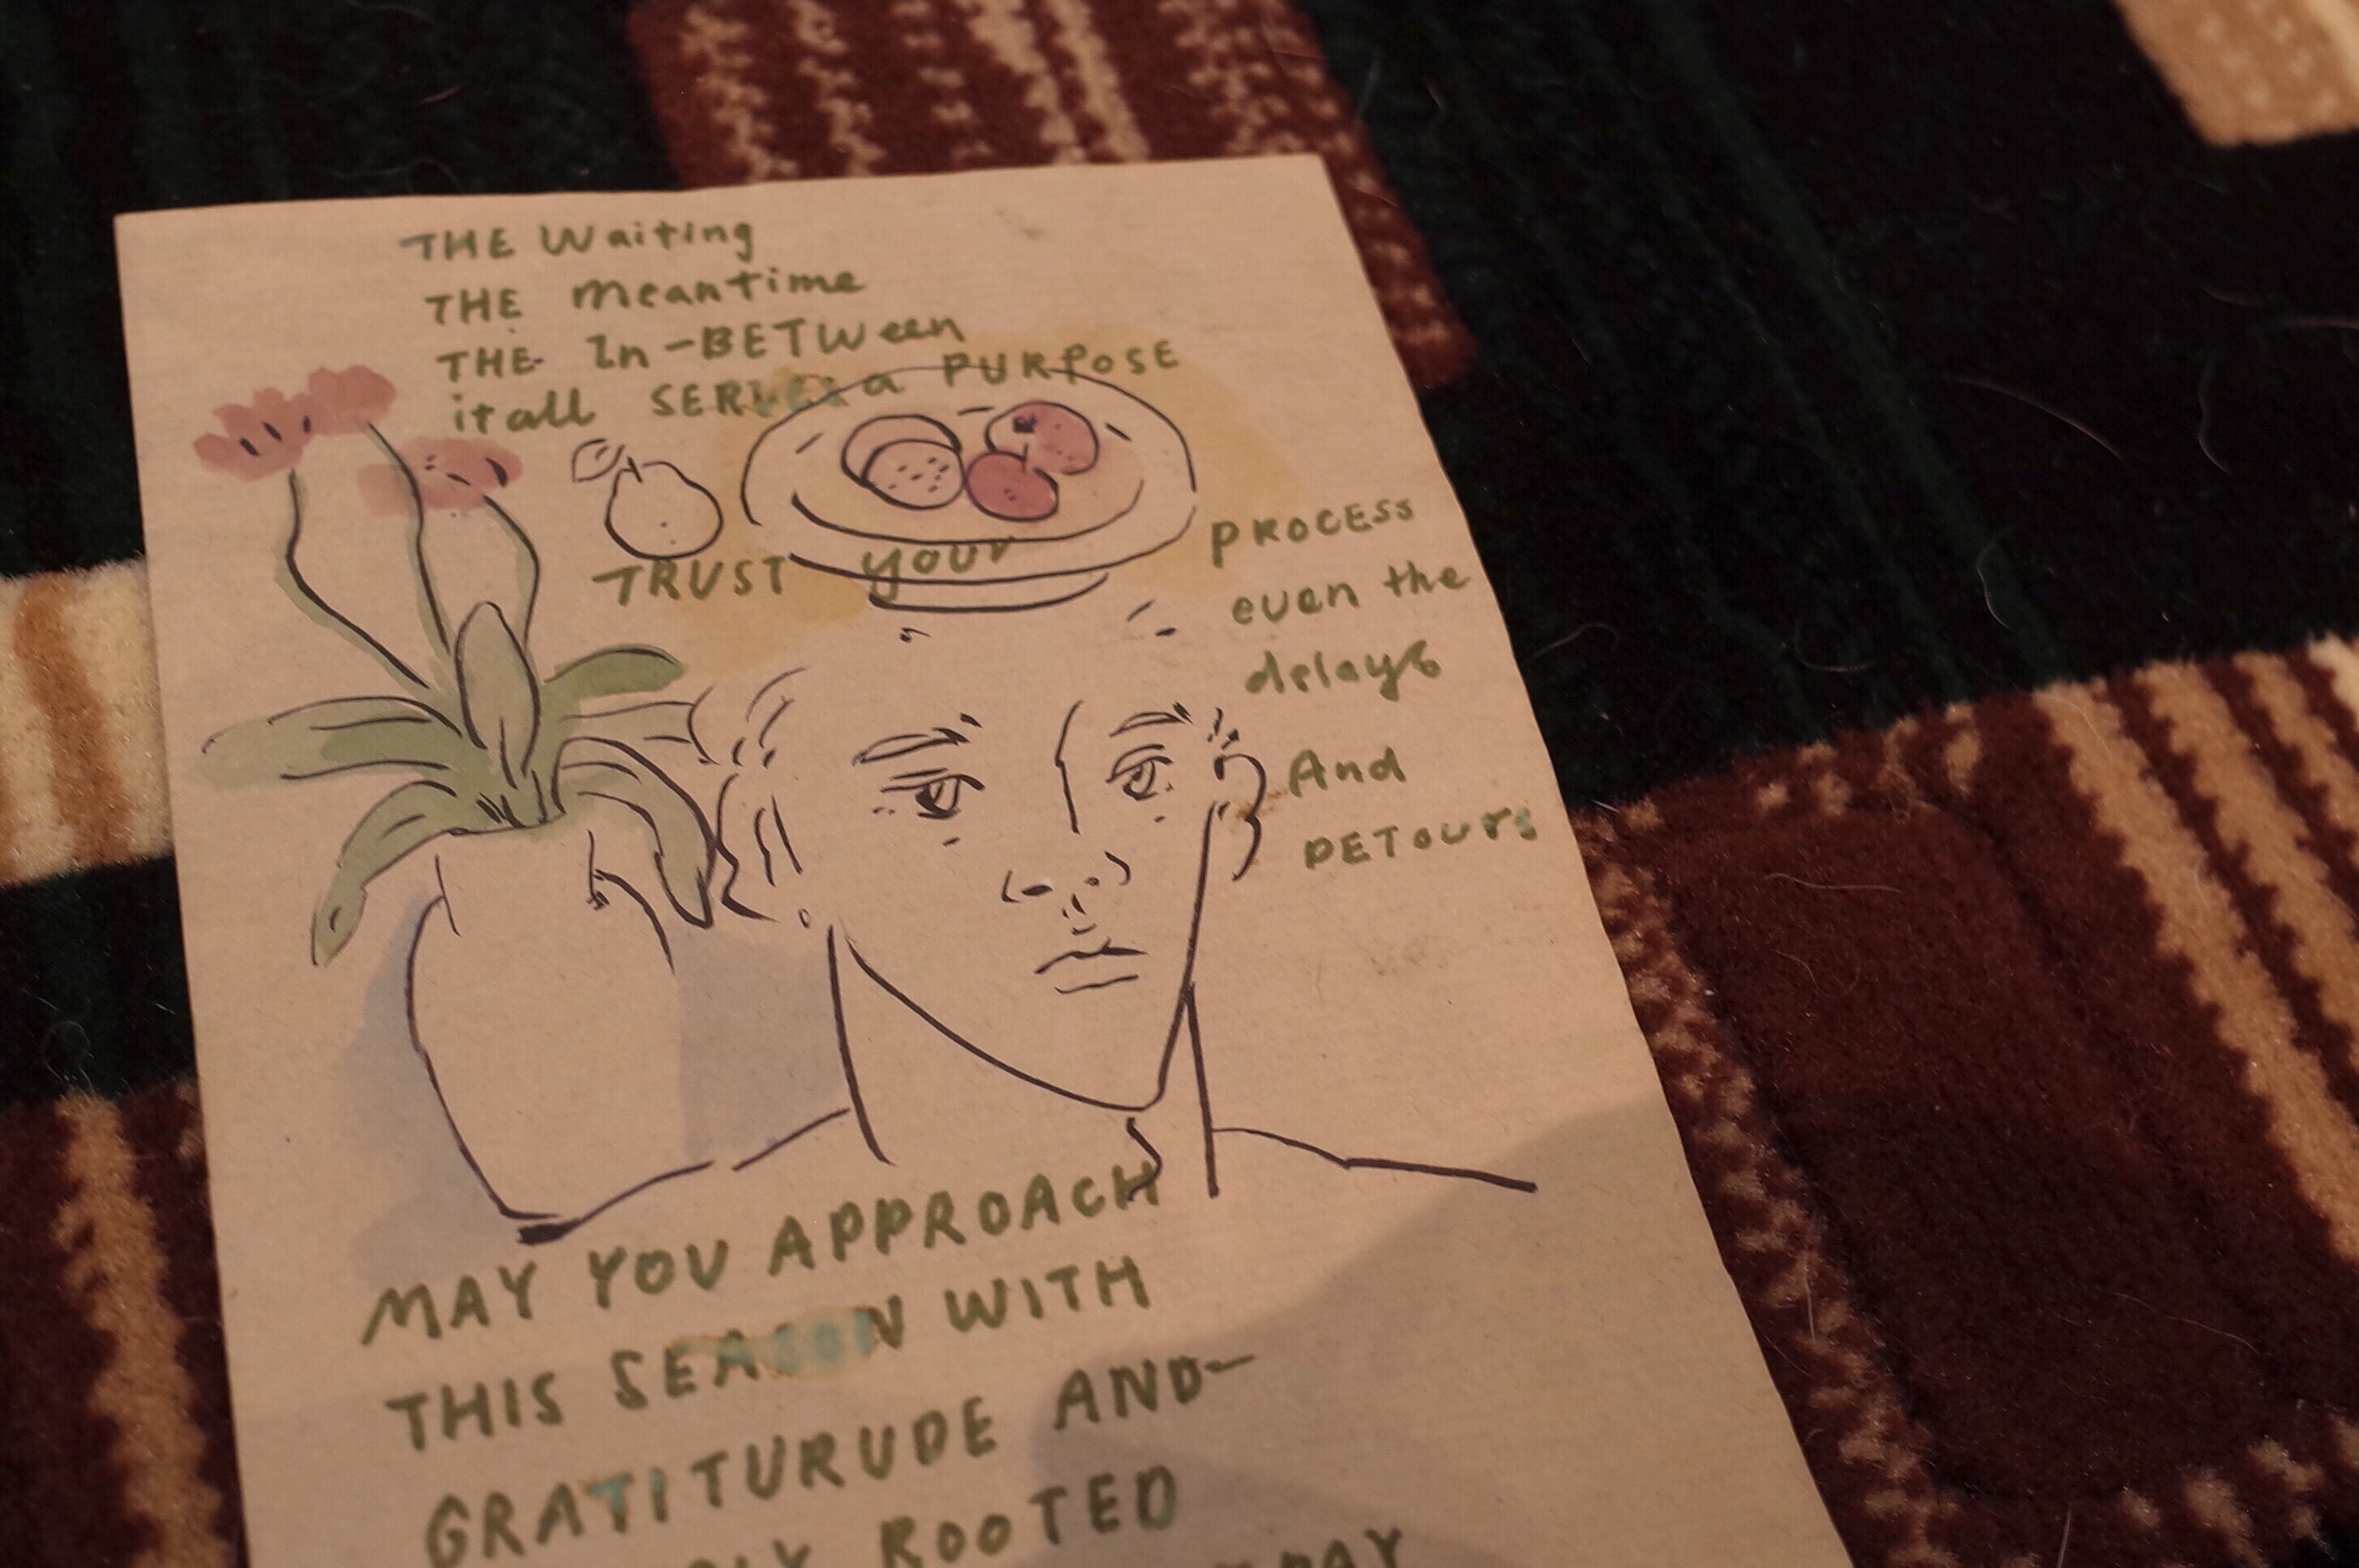 THE Waiting
THE meantime
THE In-BETWeen
it all SERVES a PURPOSE
TRUST your PROCESS
even the
delays
And
DETOURS
MAY YOU APPROACH
THIS SEASON WITH
GRATITURUDE AND-
ROOTED